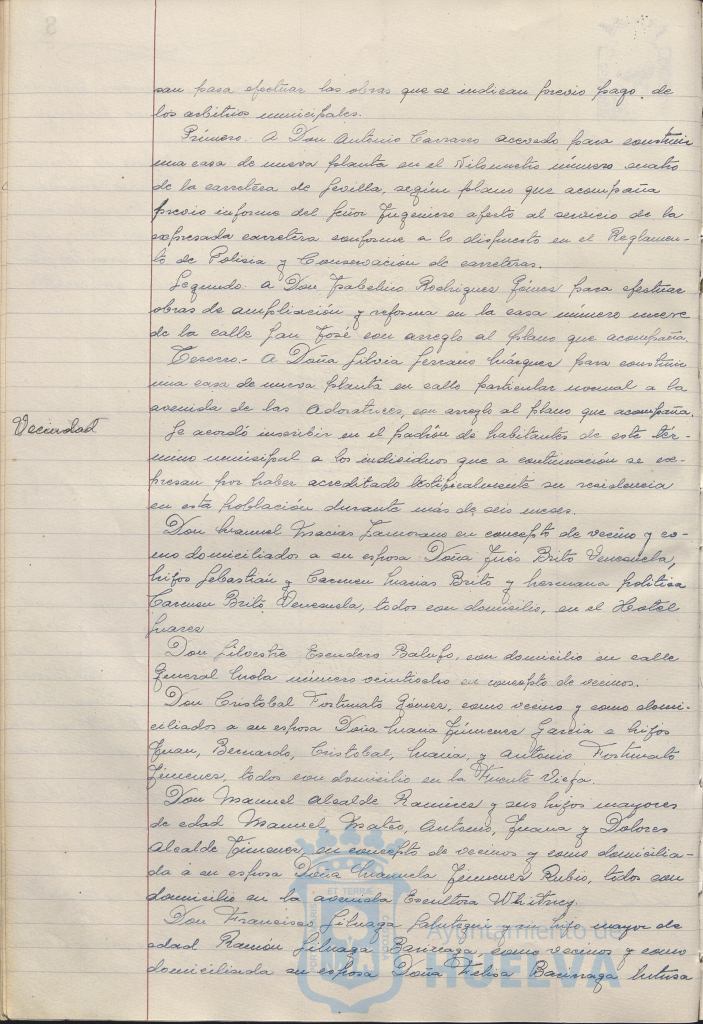 san para efectuar las obras que se indican previo pago de
los arbitrios municipales.
Primero. A Don Antonio Carrasco Acevedo para construir
una casa de nueva planta en el Kilometro número cuatro
de la carretera de Sevilla, según plano que acompaña
previo informe del Señor Ingeniero afecto al servicio de la
expresada carretera conforme a lo dispuesto en el Reglamen-
to de Policia y Conservacion de carreteras.
Segundo. A Don Isabelino Rodriguez Gómez para efectuar
obras de ampliación y reforma en la casa número nueve
de la calle San José con arreglo al plano que acompaña.
Tercero.- A Doña Silvia Serrano Márquez para construir
una casa de nueva planta en calle particular normal a la
avenida de las Adoratrices, con arreglo al plano que acompaña.
Vecindad
Se acordó inscribir en el padrón de habitantes de este tér-
mino municipal a los individuos que a continuación se ex-
presan por haber acreditado testificalmente su residencia
en esta población durante más de seis meses.
Don Manuel Macias Zamorano en concepto de vecino y co-
mo domiciliados a su esposa Doña Inés Brito Venezuela,
hijos Sebastián y Carmen Macias Brito y hermana politica
Carmen Brito Venezuela, todos con domicilio, en el Hotel
Suarez
Don Silvestre Escudero con domicilio en calle
General Mola número veintiocho en concepto de vecinos.
Don Cristobal Fortunato Gómez, como vecino y como domi-
ciliados a su esposa Doña Maria Jimenez Garcia e hijos
Juan, Bernardo, Cristobal, Maria, y Antonio Fortunato
Jimenez, todos con domicilio en la Fuente Vieja.
Don Manuel Alcalde Ramirez y sus hijos mayores
de edad Manuel Mateo, Antonio, Juana y Dolores
Alcalde Jimenez, en concepto de vecinos y como domicilia-
da á su esposa Doña Manuela Jimenez Rubio, todos con
domicilio en la avenida Escultora Whitney.
Don Francisco y su hijo mayor de
edad Ramón como vecinos y como
domiciliada su esposa Doña Felisa
ET TERRAE
Ayuntamiento de
HUELVA